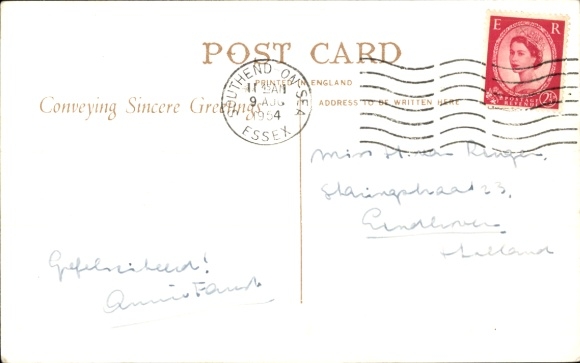 POST CARD
PRINTED IN ENGLAND
Conveying Sincere Greetings
ADDRESS TO BE WRITTEN HERE
SOUTHEND ON SEA
11 AM
9 AUG
1954
ESSEX
E R
POSTAGE REVENUE
2½
Miss
23,
Eindhoven
Holland
Gefeliciteerd!
Annie